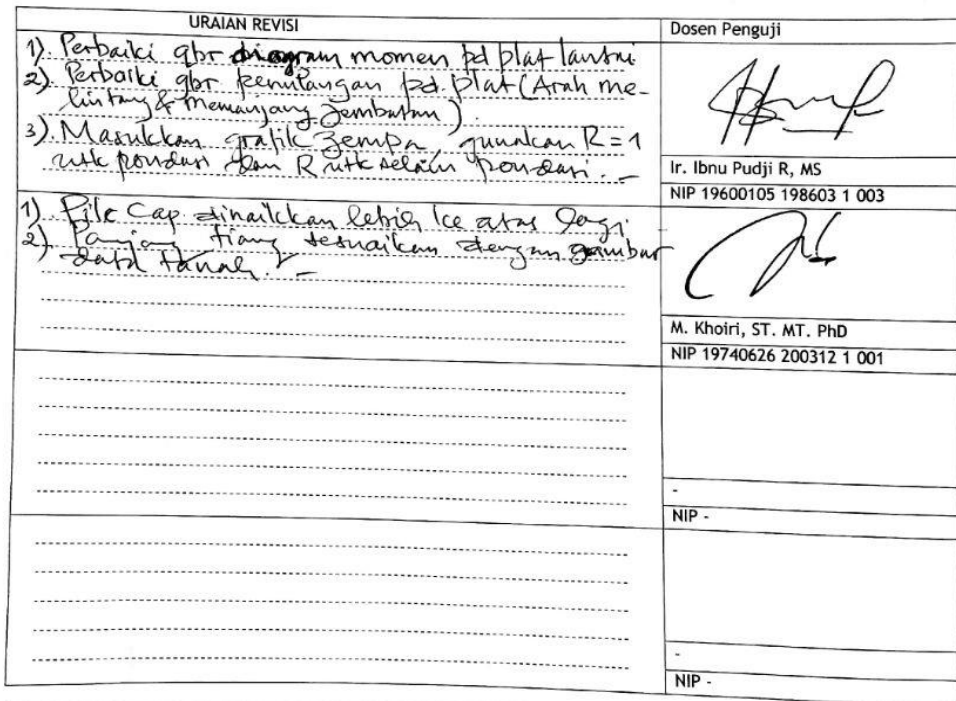 URAIAN REVISI
Dosen Penguji
1). Perbaiki gbr diagram momen pd plat lantai
2). Perbaiki gbr penulangan pd. plat (Arah me-
lintang & memanjang Jembatan).
3). Masukkan grafik gempa, gunakan R = 1
utk pondasi dan R utk selain pondasi. -
Ir. Ibnu Pudji R, MS
NIP 19600105 198603 1 003
1) Pile Cap dinaikkan lebih ke atas lagi.
2) Panjang tiang sesuaikan dengan gambar
data tanah. -
M. Khoiri, ST. MT. PhD
NIP 19740626 200312 1 001
-
NIP -
-
NIP -